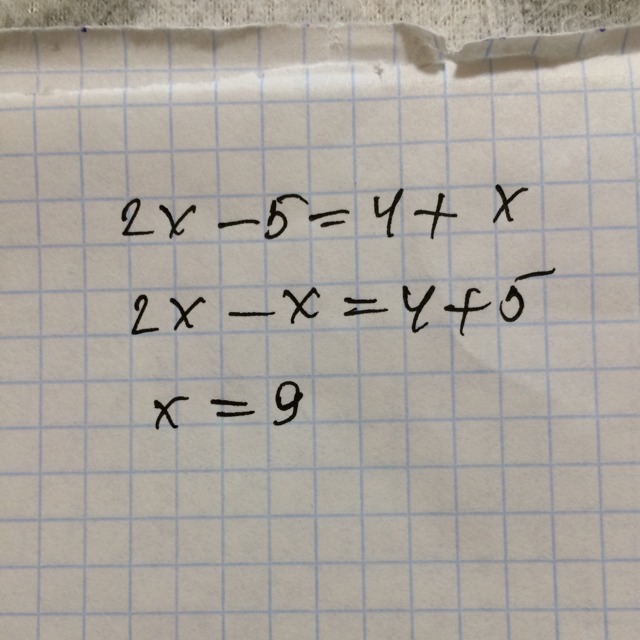 2x - 5 = 4 + x
2x - x = 4 + 5
x = 9